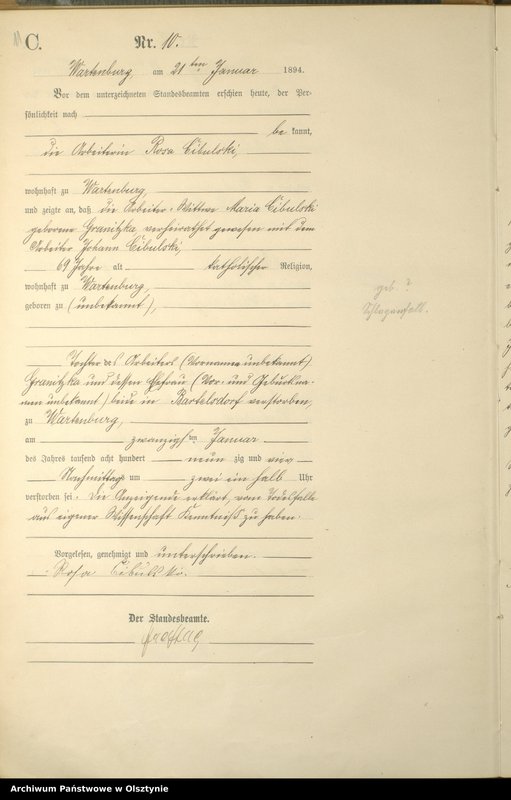 C.
Nr. 10.
Wartenburg am 21ten Januar 1894.
Vor dem unterzeichneten Standesbeamten erschien heute, der Per-
sönlichkeit nach
be kannt,
die Arbeiterin Rosa Cibulski,
wohnhaft zu Wartenburg,
und zeigte an, daß die Arbeiter-Wittwe Maria Cibulski
geborene Granitzka verheirathet gewesen mit dem
Arbeiter Johann Cibulski,
69 Jahre alt katholischer Religion,
wohnhaft zu Wartenburg,
geboren zu (unbekannt),
geb ?
Schlaganfall.
Tochter des Arbeiters (Vornamen unbekannt)
Granitzka und dessen Ehefrau (Vor- und Geburtsna-
men unbekannt) beide in Bartelsdorf verstorben,
zu Wartenburg,
am zwanzigsten Januar
des Jahres tausend acht hundert neun zig und vier
Nachmittags um zwei ein halb Uhr
verstorben sei. Die Anzeigende erklärt, vom Todesfalle
aus eigener Wissenschaft Kenntniß zu haben.
Vorgelesen, genehmigt und unterschrieben.
Rosa Cibulski.
Der Standesbeamte.
Archiwum Państwowe w Olsztynie